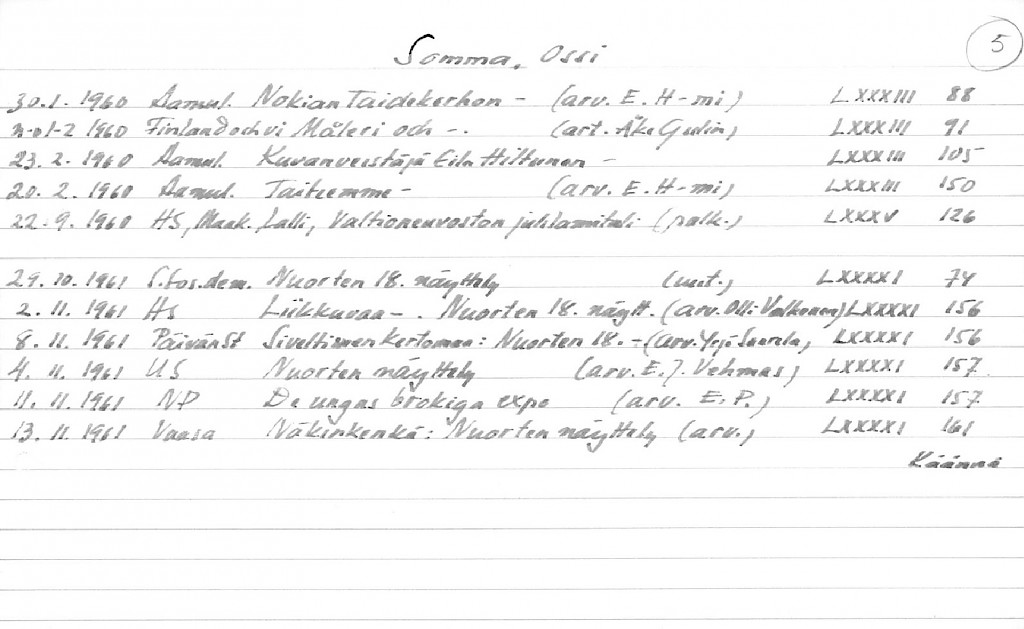 Somma, Ossi
5
30.1.1960 Aamul. Nokian Taidekerhon - (arv. E. H-mi) LXXXIII 88
1960 Finland och vi Måleri och -. (art. Åke Gulin) LXXXIII 91
23.2.1960 Aamul. Kuvanveistäjä Eila Hiltunen - LXXXIII 105
20.2.1960 Aamul. Taiteemme - (arv. E. H-mi) LXXXIII 150
22.9.1960 HS, Maak. Lalli, Valtioneuvoston juhlamitali (palk.) LXXXV 126
29.10.1961 S.sos.dem. Nuorten 18. näyttely (uut.) LXXXXI 74
2.11.1961 HS Liikkuvaa - . Nuorten 18. näytt. (arv. Olli Valkonen) LXXXXI 156
8.11.1961 PäivänSt Siveltimen kertomaa: Nuorten 18. - (arv. Yrjö Saarela) LXXXXI 156
4.11.1961 US Nuorten näyttely (arv. E.J. Vehmas) LXXXXI 157
11.11.1961 NP De ungas brokiga expo (arv. E.P.) LXXXXI 157
13.11.1961 Vaasa Näkinkenkä: Nuorten näyttely (arv.) LXXXXI 161
Käännä